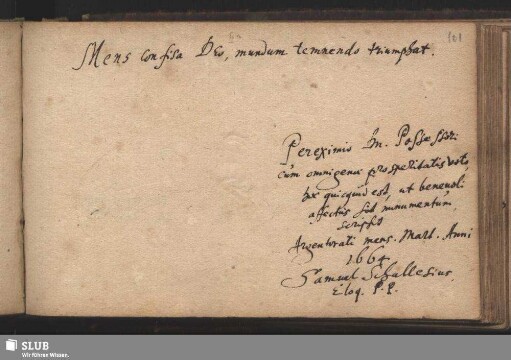 101
Mens confisa Deo, mundum temnendo triumphat.
Pereximio Dn. Possessori
cum omnigenæ prosperitatis voto,
hoc quicquid est, ut benevoli
affectus sit monumentum
scripsit
Argentorati mens. Mart. Anni
1664
Samuel Schallesius
Eloq. P. P.
SLUB
Wir führen Wissen.